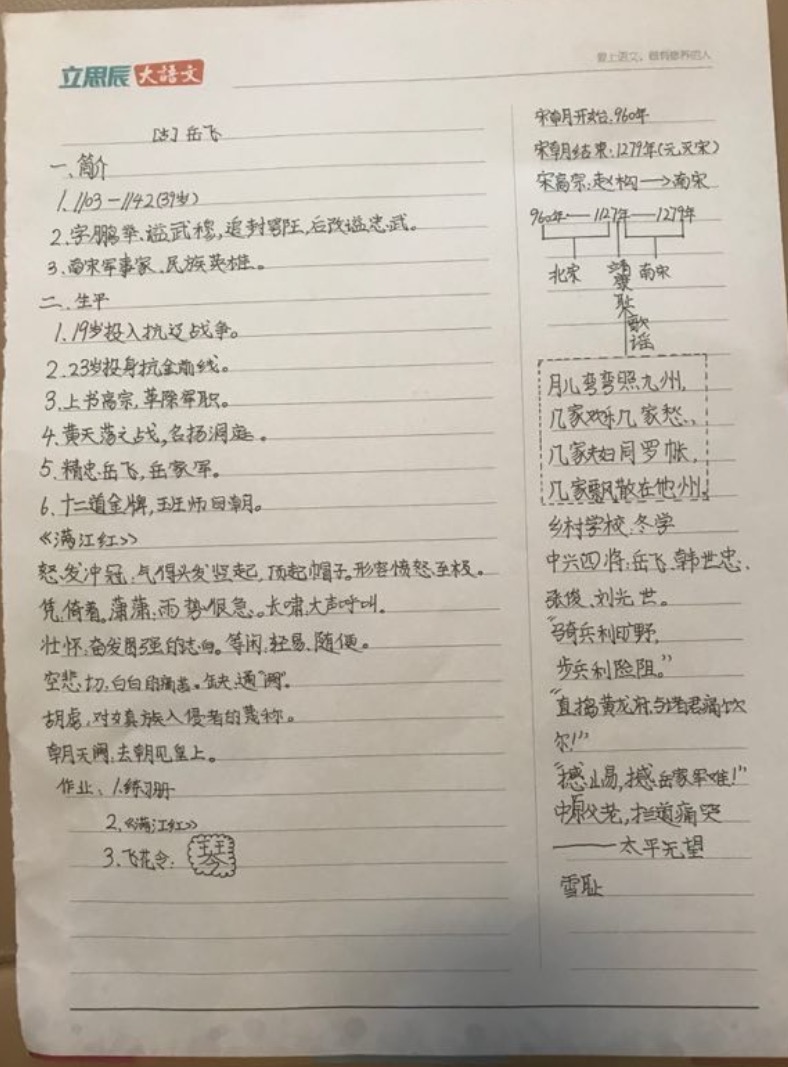 立思辰大語文
爱上语文，做有修养的人
岳飞
一、简介
1.1103－1142(39岁)
2.字鹏举,谥武穆,追封鄂王,后改谥忠武。
3.南宋军事家、民族英雄。
二、生平
1.19岁投入抗辽战争。
2.23岁投身抗金前线。
3.上书高宗,革除军职。
4.黄天荡之战,名扬洞庭。
5.精忠岳飞,岳家军。
6.十二道金牌,班师回朝。
《满江红》
怒发冲冠:气得头发竖起,顶起帽子。形容愤怒至极。
凭:倚着。潇潇:雨势很急。长啸:大声呼叫。
壮怀:奋发图强的志向。等闲:轻易、随便。
空悲切:白白的痛苦。缺:通"阙"。
胡虏:对女真族入侵者的蔑称。
朝天阙:去朝见皇上。
作业:1.练习册
2.《满江红》
3.飞花令:琴
宋朝开始:960年
宋朝结束:1279年(元灭宋)
宋高宗:赵构→南宋
960年—1127年—1279年
北宋 靖康耻 南宋
歌谣
月儿弯弯照九州,
几家欢乐几家愁、,
几家夫妇同罗帐,
几家飘散在他州。
乡村学校:冬学
中兴四将:岳飞、韩世忠、
张俊、刘光世。
"骑兵利旷野,
步兵利险阻。"
"直捣黄龙府与诸君痛饮
尔!"
"撼山易,撼岳家军难!"
中原父老,拦道痛哭
——太平无望
雪耻